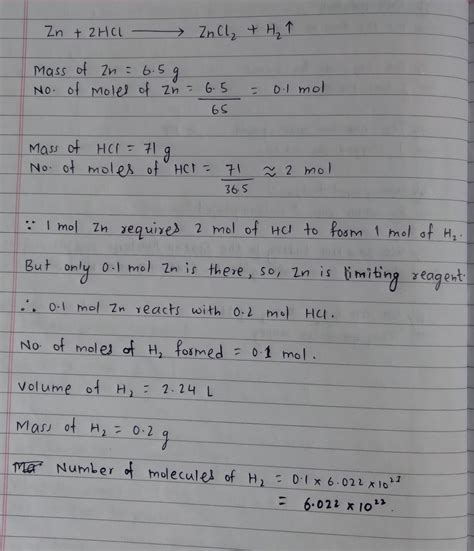 Zn + 2HCl ⟶ ZnCl₂ + H₂↑
Mass of Zn = 6.5 g
No. of moles of Zn = 6.5/65 = 0.1 mol
Mass of HCl = 71 g
No. of moles of HCl = 71/36.5 ≈ 2 mol
∵ 1 mol Zn requires 2 mol of HCl to form 1 mol of H₂.
But only 0.1 mol Zn is there, so, Zn is limiting reagent
∴ 0.1 mol Zn reacts with 0.2 mol HCl.
No. of moles of H₂ formed = 0.1 mol.
Volume of H₂ = 2.24 L
Mass of H₂ = 0.2 g
Number of molecules of H₂ = 0.1 × 6.022 × 10²³
= 6.022 × 10²².